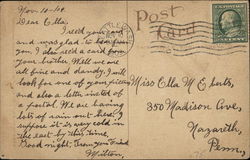 Nov. 10-09.
Dear Ella,
I recd your card
and was glad to hear from
you, I also recd a card from
your brother. Well we are
all fine and dandy, I will
look for one of your pictures
and also a letter instead
of a postal. We are having
lots of rain out here, I
suppose it is very cold in
the east by this time.
Good night, from your friend
Milton.
Post
Card
Miss Ella M.
350 Madison Ave,
Nazareth,
Penn.